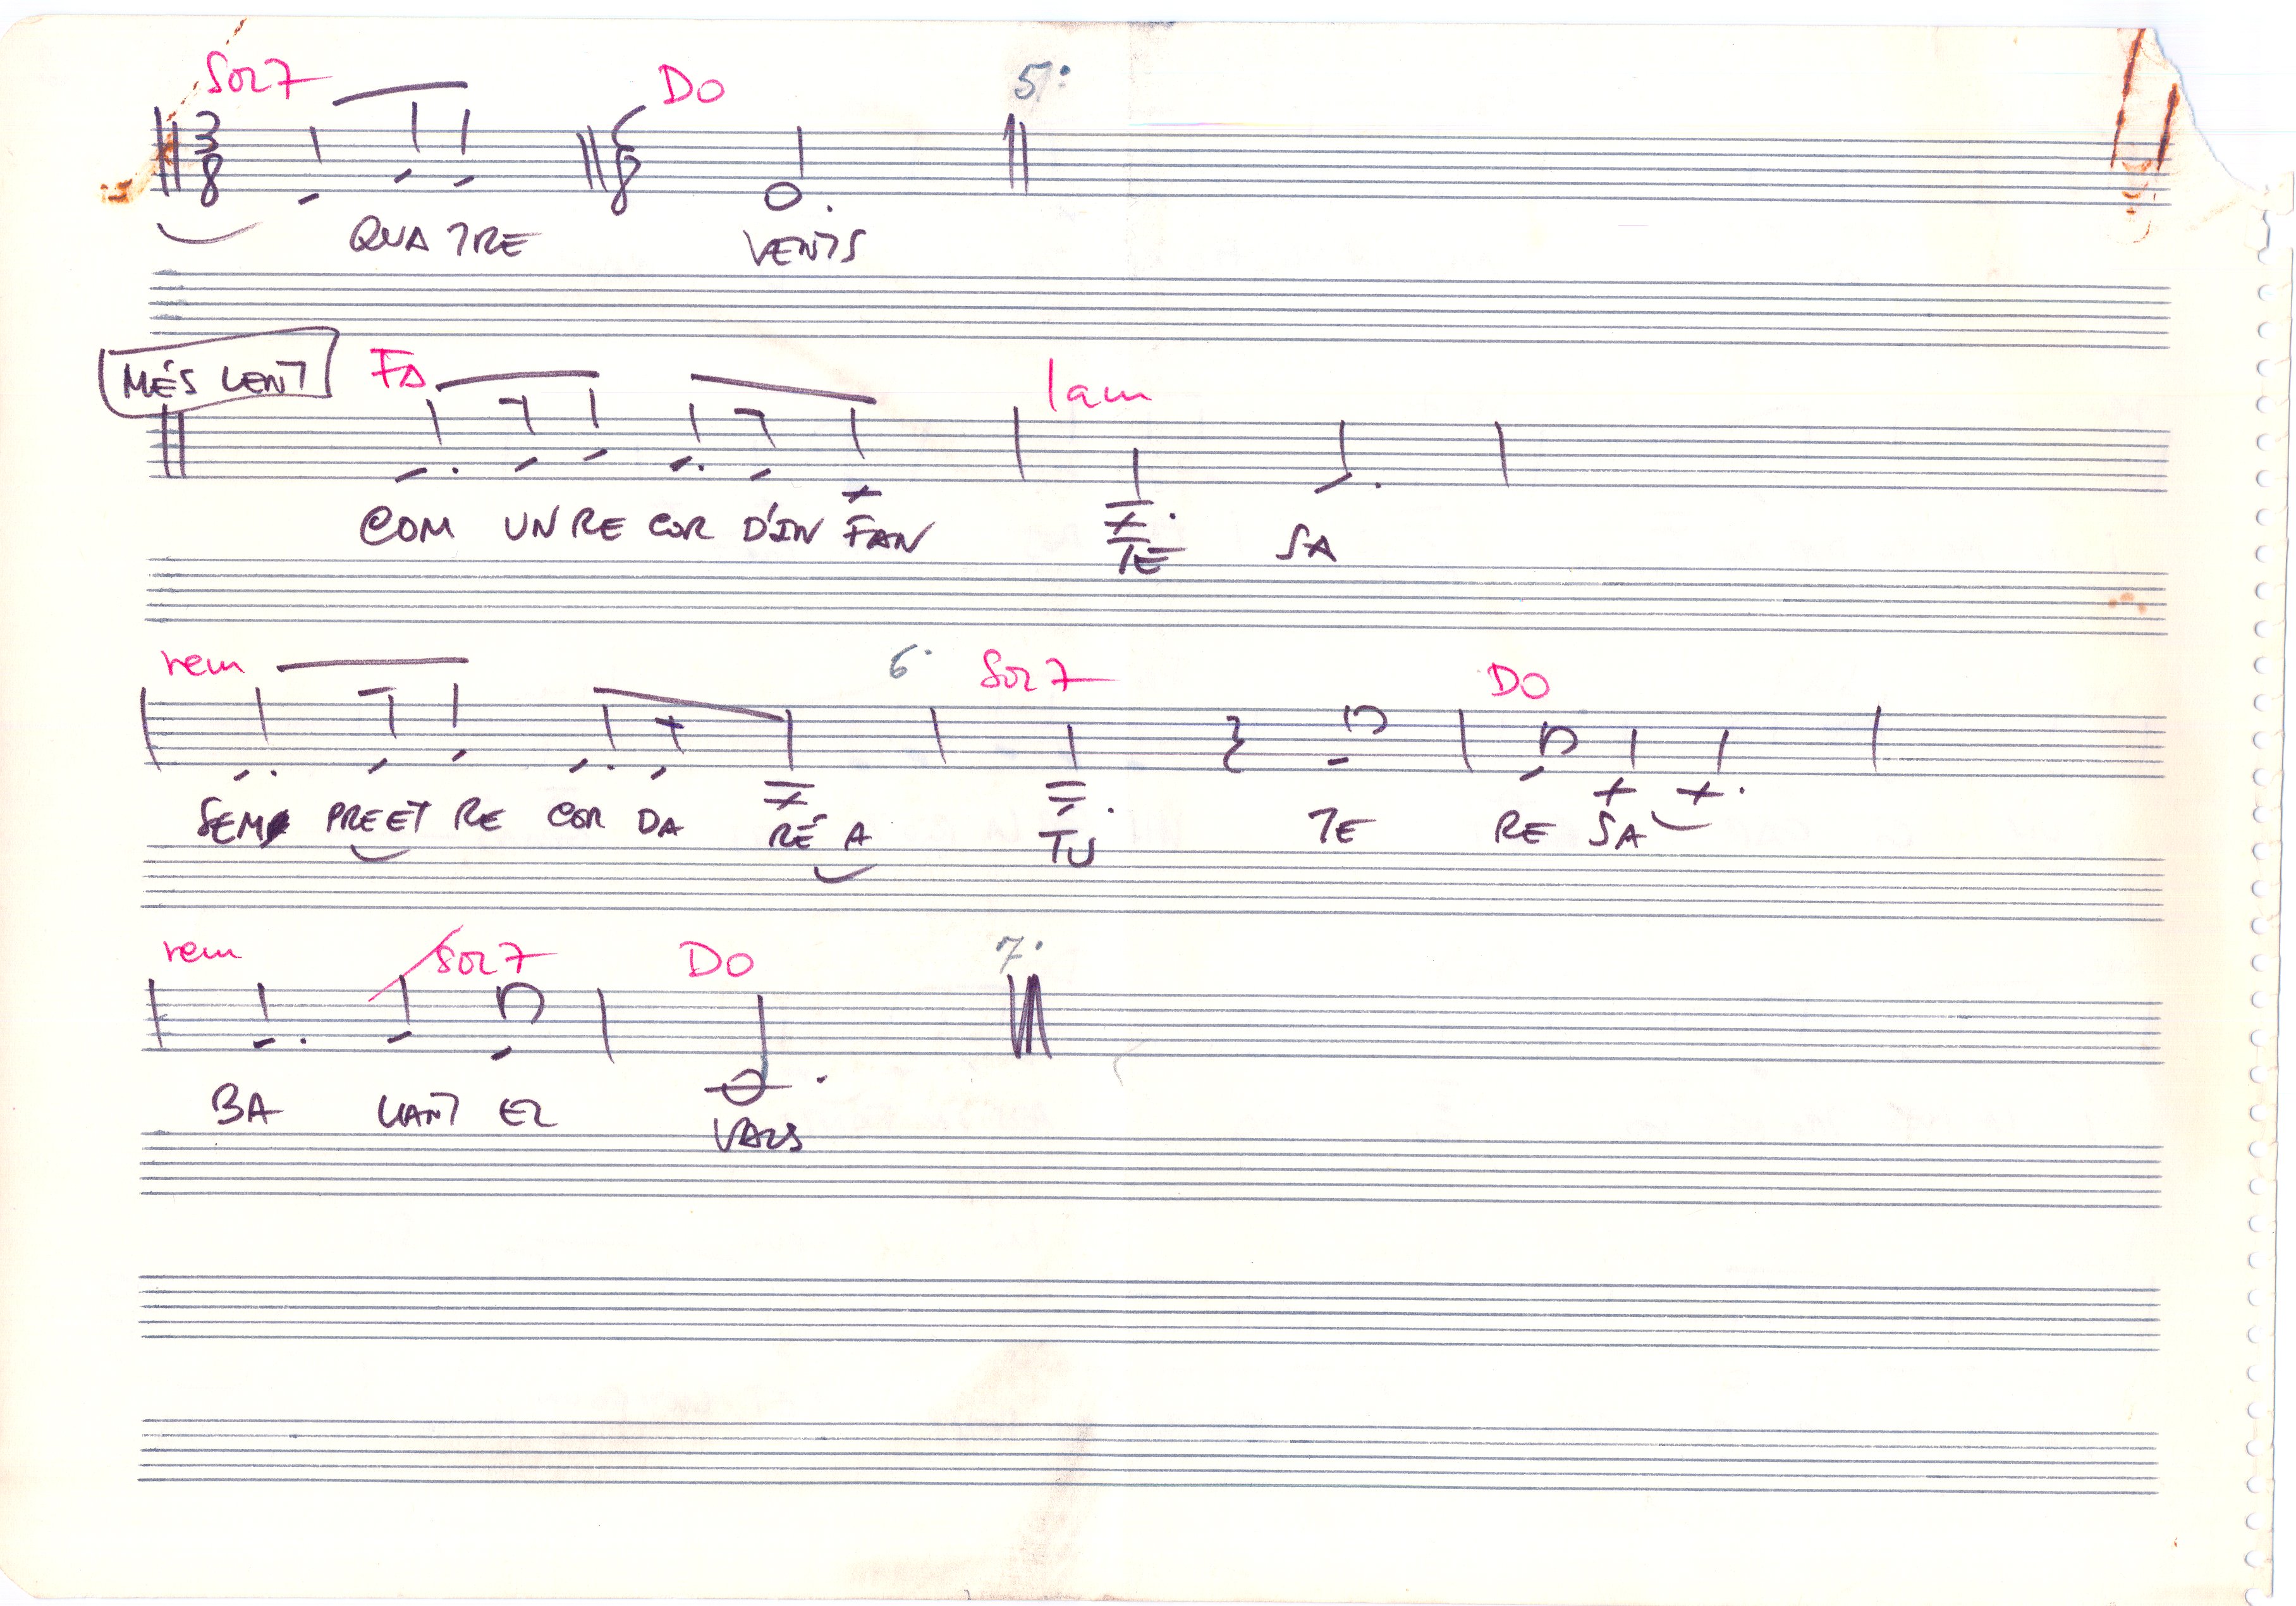 Sol7 Do 5.
3/8 6/8
QUA TRE VENTS
MÉS LENT Fa lam
COM UN RE COR D'IN FAN TE SA
rem 6. Sol7 Do
SEM PRE ET RE COR DA RÉ A TU TE RE SA
rem Sol7 Do 7.
BA LLANT EL VALS